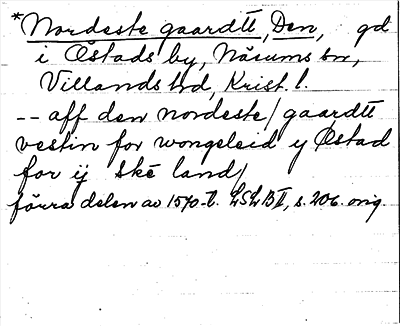 *Nordeste gaardtt, Den, gd
i Östads by, Näsums sn,
Villands hd, Krist. l.
-- aff den nordeste / gaardtt
vestin for wongeleid y Östad
for ij ske land /
förra delen av 1570-t. LSLB II, s. 206. orig.